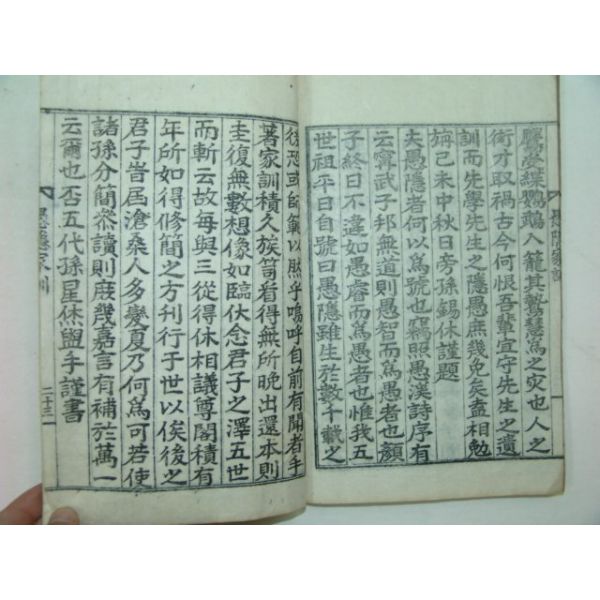 鸚鵡入籠其驚慧爲之灾也人之
術才取禍古今何恨吾輩宜守先生之遺
訓而先學先生之隱愚庶幾免矣盍相勉
旃己未中秋日旁孫錫休謹題
夫愚隱者何以爲號也竊照愚漢詩序有
云甯武子邦無道則愚智而爲愚者也顔
子終日不違如愚睿而爲愚者也惟我五
世祖平日自號曰愚隱雖生於數千載之
後恐或師範以然乎嗚呼自前有聞者手
著家訓積久族笥看得無所晩出還本則
圭復無數想像如臨伏念君子之澤五世
而斬云故每與三從得休相議尊閣積有
年所如得修簡之方刊行于世以俟後之
君子旹屆滄桑人多變夏乃何爲可若使
諸孫分簡叅讀則庶幾嘉言有補於萬一
云爾也否五代孫星烋盥手謹書
愚隱家訓
二十三